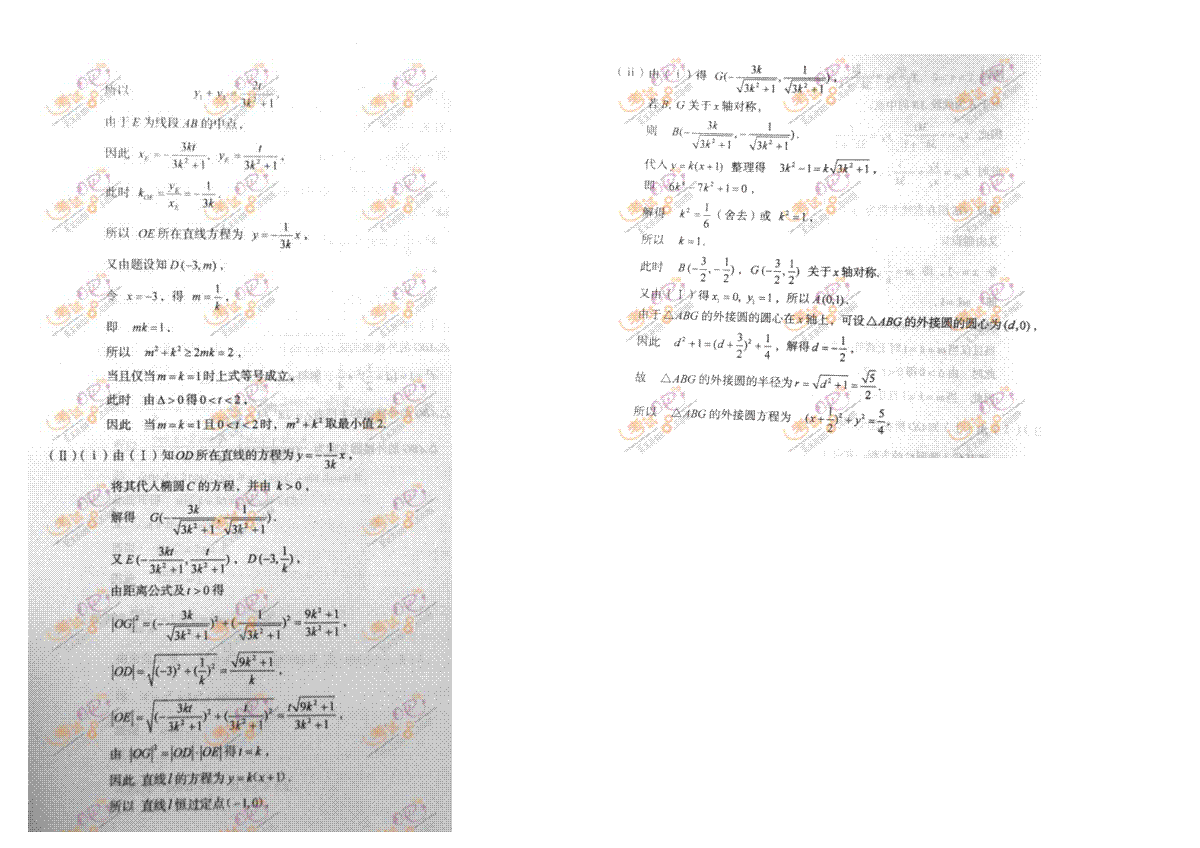 所以 y₁+y₂=2t/(3k²+1),
由于E为线段AB的中点,
因此 x_E=-3kt/(3k²+1), y_E=t/(3k²+1),
此时 k_OE=y_E/x_E=-1/(3k).
所以 OE所在直线方程为 y=-1/(3k) x,
又由题设知D(-3,m),
令 x=-3, 得 m=1/k,
即 mk=1,
所以 m²+k²≥2mk=2,
当且仅当m=k=1时上式等号成立,
此时 由Δ>0得0<t<2,
因此 当m=k=1且0<t<2时, m²+k²取最小值2.
(Ⅱ)(ⅰ)由(Ⅰ)知OD所在直线的方程为y=-1/(3k) x,
将其代入椭圆C的方程, 并由 k>0,
解得 G(-3k/√(3k²+1), 1/√(3k²+1)).
又E(-3kt/(3k²+1), t/(3k²+1)), D(-3, 1/k),
由距离公式及t>0得
|OG|²=(-3k/√(3k²+1))²+(1/√(3k²+1))²=(9k²+1)/(3k²+1),
|OD|=√((-3)²+(1/k)²)=√(9k²+1)/k,
|OE|=√((-3kt/(3k²+1))²+(t/(3k²+1))²)=t√(9k²+1)/(3k²+1),
由 |OG|²=|OD|·|OE|得t=k,
因此 直线l的方程为y=k(x+1).
所以 直线l恒过定点(-1,0).
(ⅱ)由(ⅰ)得 G(-3k/√(3k²+1), 1/√(3k²+1)),
若B, G关于x轴对称,
则 B(-3k/√(3k²+1), -1/√(3k²+1)).
代入y=k(x+1) 整理得 3k²-1=k√(3k²+1),
即 6k⁴-7k²+1=0,
解得 k²=1/6 (舍去)或 k²=1,
所以 k=1.
此时 B(-3/2, -1/2), G(-3/2, 1/2) 关于x轴对称.
又由(Ⅰ)得x₁=0, y₁=1, 所以A(0,1).
由于△ABG的外接圆的圆心在x轴上, 可设△ABG的外接圆的圆心为(d,0),
因此 d²+1=(d+3/2)²+1/4, 解得d=-1/2,
故 △ABG的外接圆的半径为r=√(d²+1)=√5/2.
所以 △ABG的外接圆方程为 (x+1/2)²+y²=5/4.